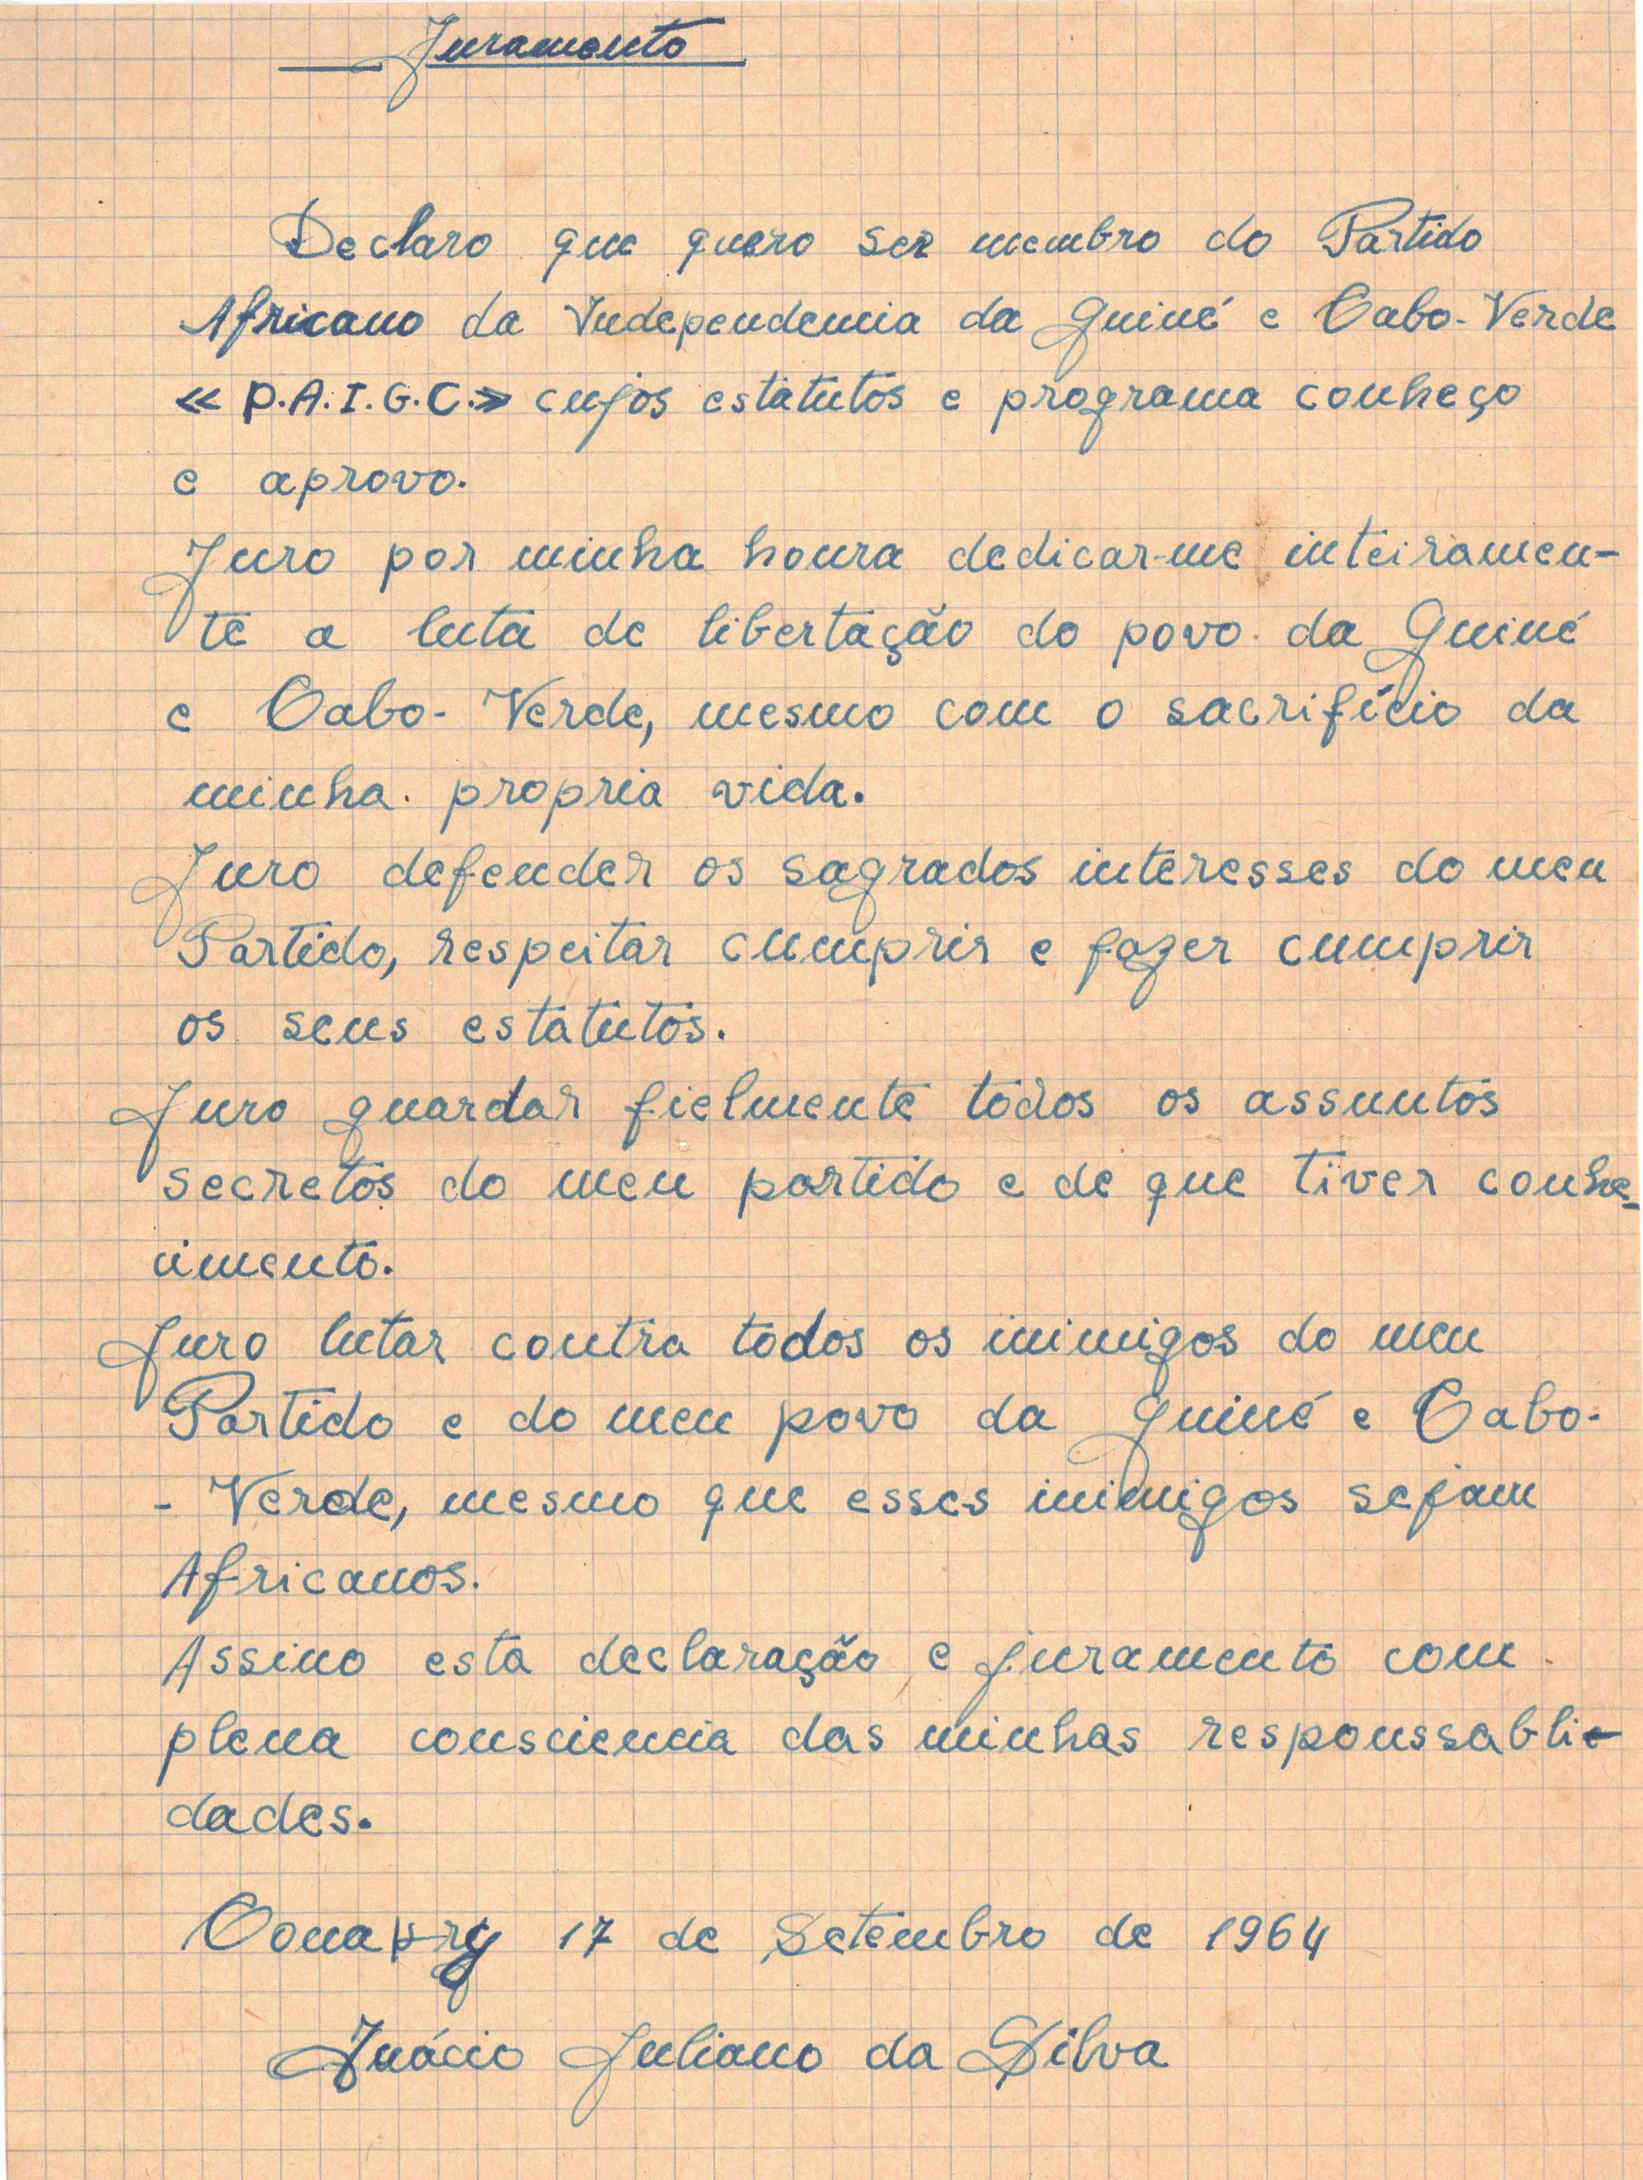 Juramento
Declaro que quero ser membro do Partido
Africano da Independencia da Guiné e Cabo-Verde
« P.A.I.G.C.» cujos estatutos e programa conheço
e aprovo.
Juro por minha honra dedicar-me inteiramen-
te a luta de libertação do povo da Guiné
e Cabo-Verde, mesmo com o sacrifício da
minha propria vida.
Juro defender os sagrados interesses do meu
Partido, respeitar cumprir e fazer cumprir
os seus estatutos.
Juro guardar fielmente todos os assuntos
secretos do meu partido e de que tiver conhe-
cimento.
Juro lutar contra todos os inimigos do meu
Partido e do meu povo da Guiné e Cabo-
- Verde, mesmo que esses inimigos sejam
Africanos.
Assino esta declaração e juramento com
plena consciencia das minhas responssabli-
dades.
17 de Setembro de 1964
Inácio Juliano da Silva